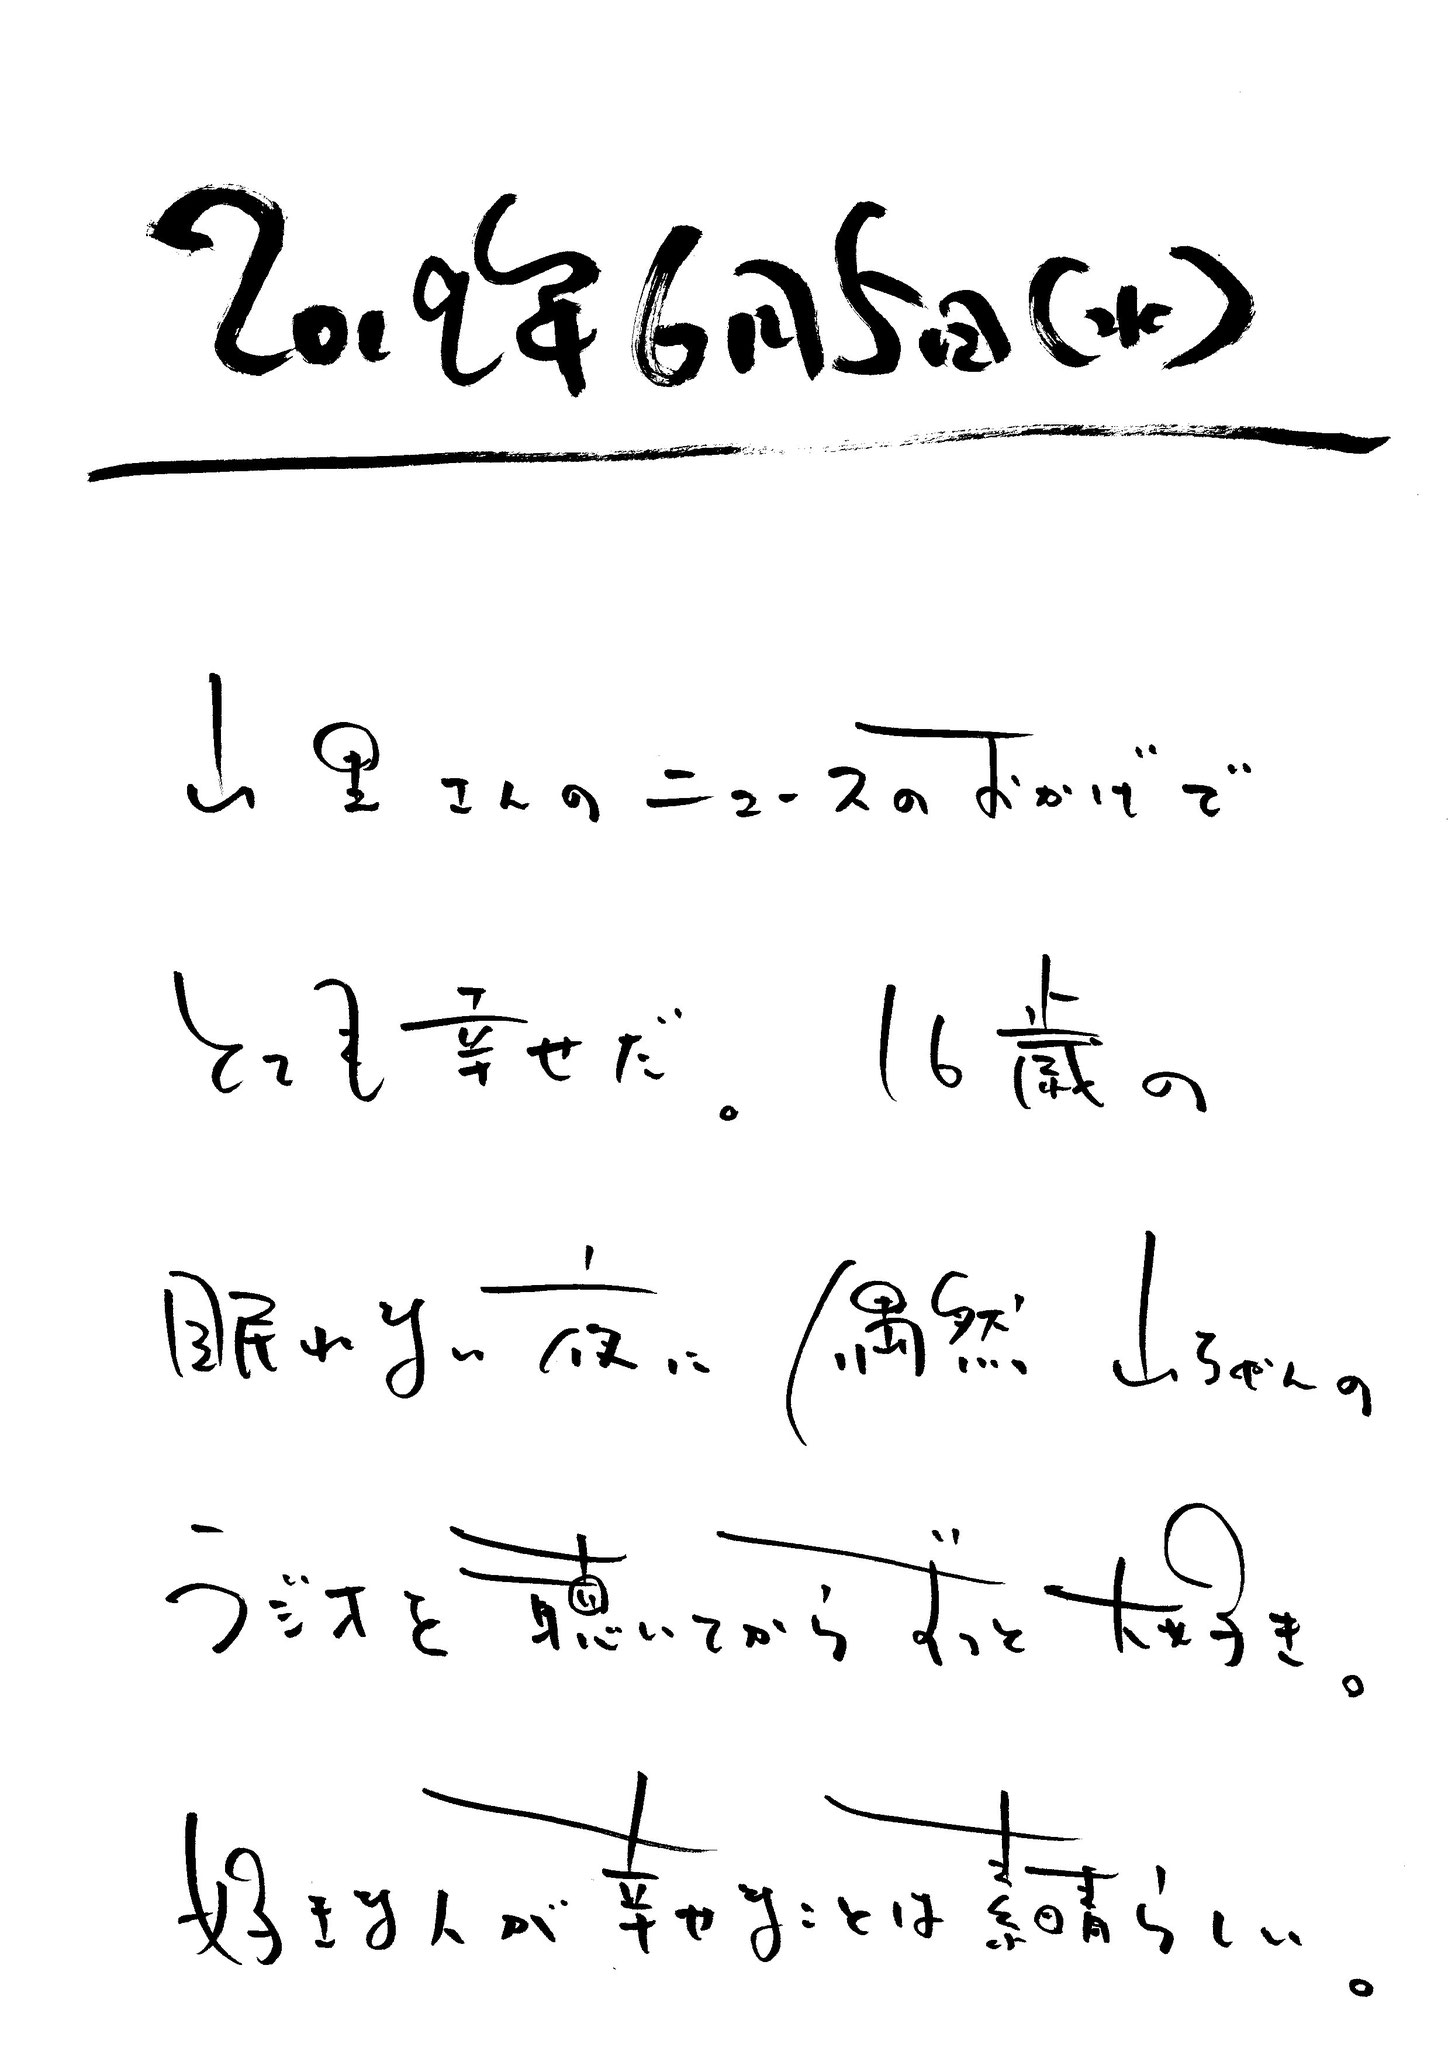 2019年6月5日(水)
山里さんのニュースのおかげで
とっても幸せだ。 16歳の
眠れない夜に 偶然 山ちゃんの
ラジオを聴いてからずっと大好き。
好きな人が幸せなことは素晴らしい。